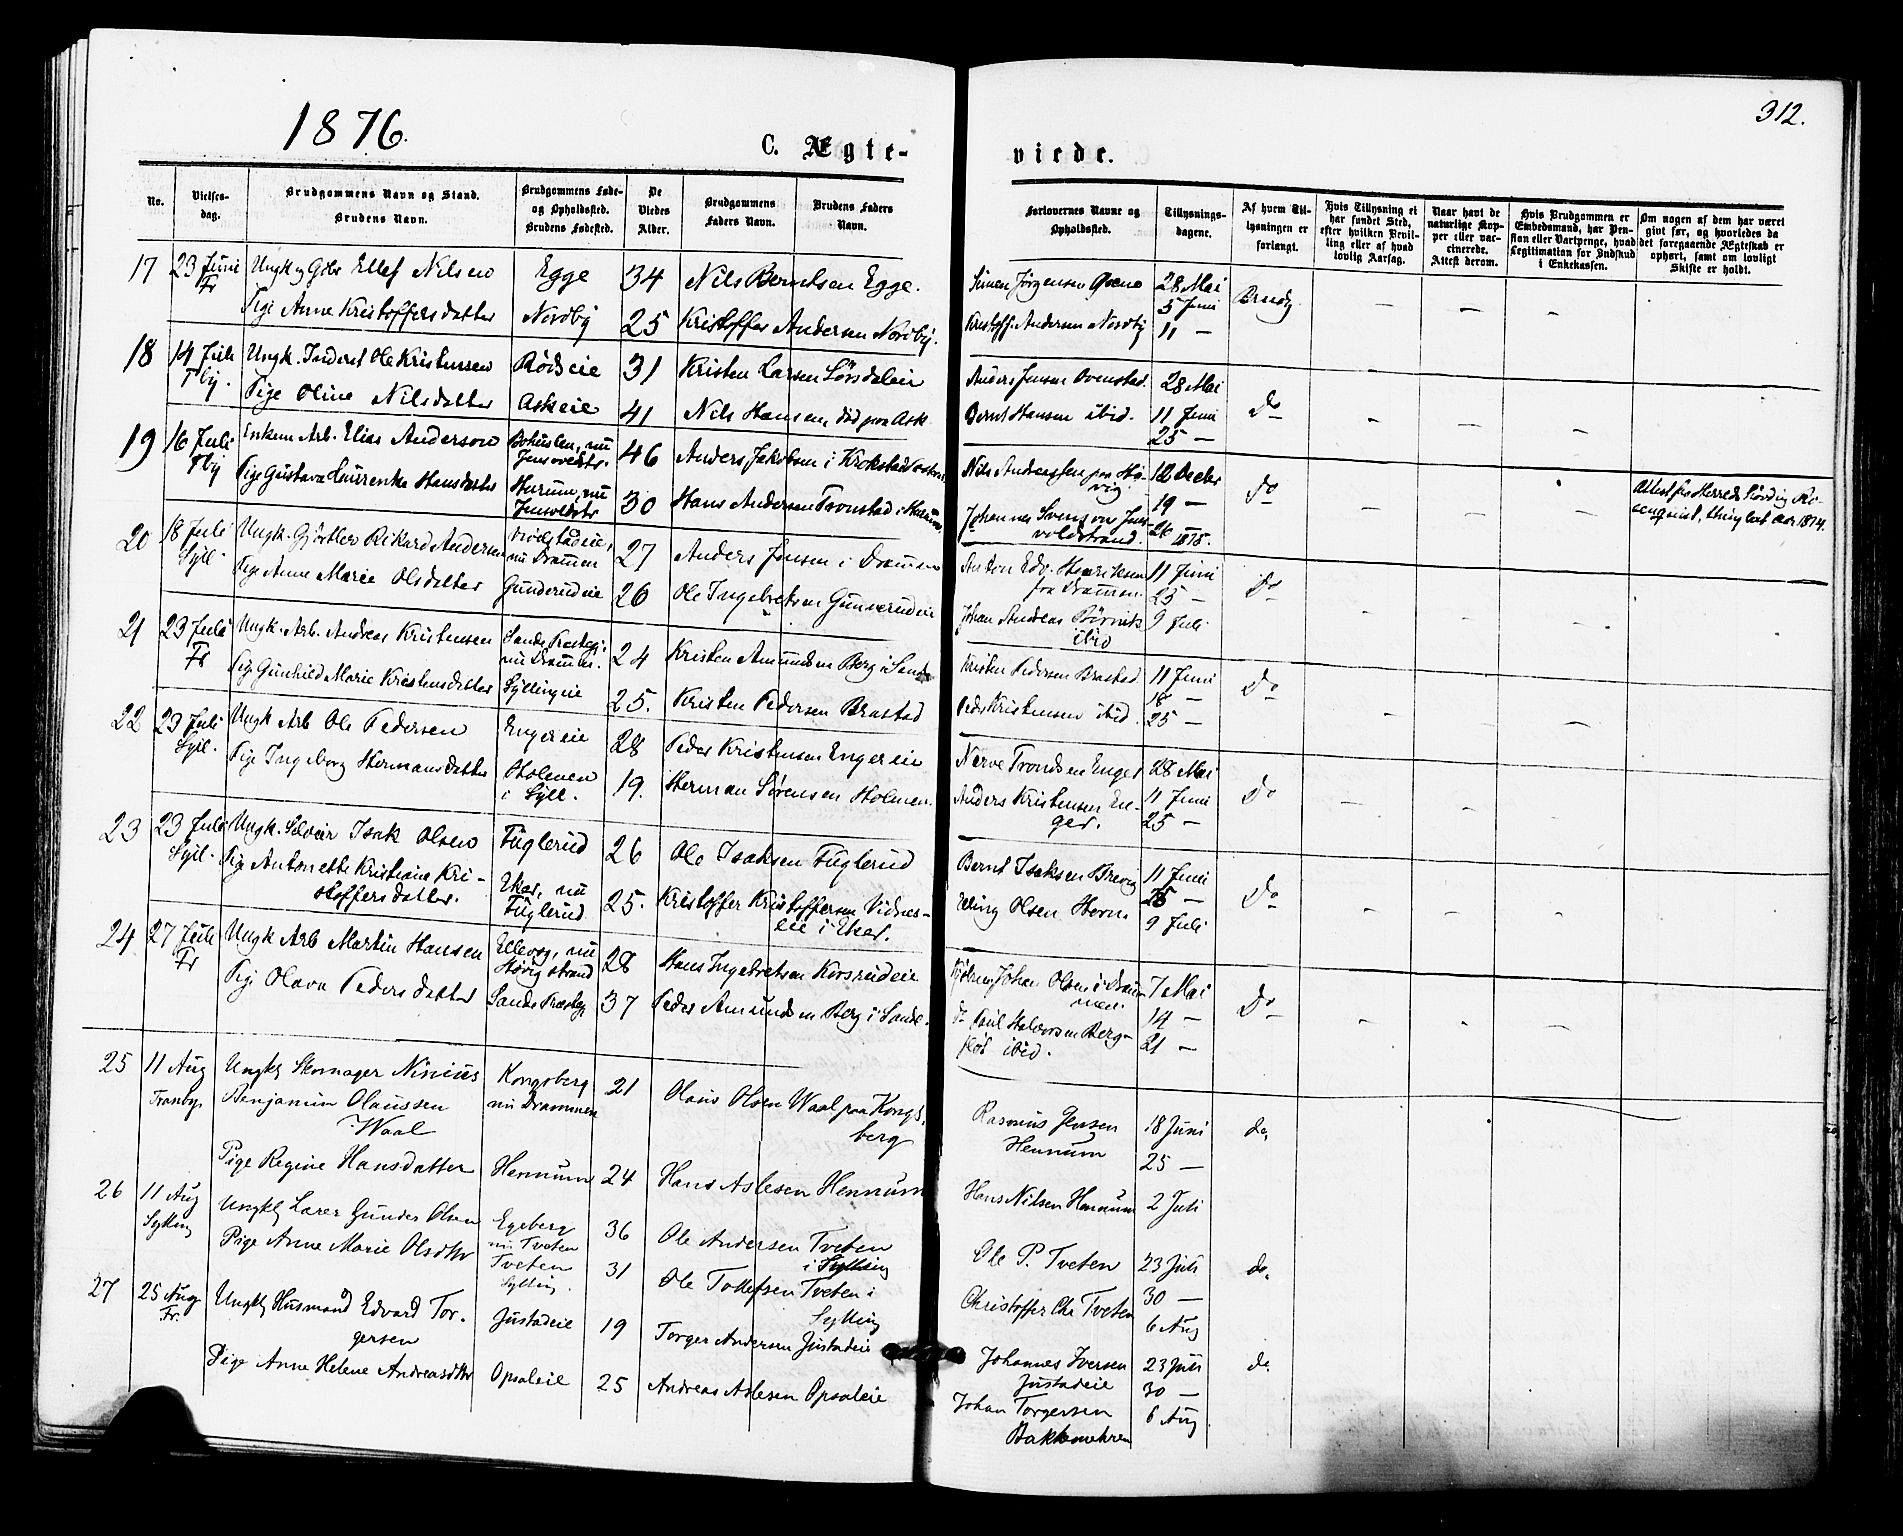 1876.
312.
C. Ægte-
viede.
No.
Vielses-
dag.
Brudgommens Navn og Stand.
Brudens Navn.
Brudgommens Føde-
og Opholdssted.
Brudens Fødested.
De
Viedes
Alder.
Brudgommens
Faders Navn.
Brudens Faders
Navn.
Forlovernes Navne og
Opholdssted.
Tillysnings-
dagene.
Af hvem Til-
lysningen er
forlangt.
Hvis Tillysning ei
har fundet Sted,
efter hvilken Bevil-
ling eller af hvad
lovlig Aarsag.
Naar havt de
naturlige Kop-
per eller vac-
cinerede.
Attest derom.
Hvis Brudgommen er
Embedsmand, har Pen-
sion eller Vartpenge, hvad
Legitimation for Indskud
i Enkekassen.
Om nogen af dem har været
givt før, og hvorledes da
det foregaaende Ægteskab er
ophørt, samt om lovligt
Skifte er holdt.
17 23 Juni Ungk og Gbr Ellef Nilsen Egge 34 Nils Berntsen Egge. Simen Jørgensen 28 Mai
Fr Pige Anne Kristoffersdatter Nordby 25 Kristoffer Andersen Nordby. Kristoff. Andersen Nordby 5 Juni Brudg.
11 —
18 14 Juli Ungk. Inderst Ole Kristensen Rødseie 31 Kristen Larsen Sørsdaleie Anders Jensen Ovenstad. 28 Mai
Tby. Pige Oline Nilsdatter Askeie 41 Nils Hansen død paa Ask Bernt Hansen ibid. 11 Juni do
25 —
19 16 Juli Enkem. Arb. Elias Anderson Bohuslen, nu 46 Anders Jakobsen i Krokstad Nils Andersen paa Hø- 12 Decbr
Tby Pige Gustava Laurenke Hansdatter Hurum, nu 30 Hans Andersen Tronstad i Hurum vig 19 — do
Johannes Svenson 26 1875.
Attest fra Herreds Høvding Ro-
senquist, thinglæst 1874.
20 18 Juli Ungk. Gjørtler Rikard Andersen nu Drammen 27 Anders Jensen i Drammen Anton Edv. Henriksen 11 Juni
Syll. Pige Anne Marie Olsdatter Gunderudeie 26 Ole Ingebretsen Gunderudeie fra Drammen. 25 — do
Johan Andreas 9 Juli
ibid
21 23 Juli Ungk. Arb. Andreas Kristensen Sande Præstegj. 24 Kristen Amundsen Berg i Sande Kristen Pedersen Brastad. 11 Juni
Fr nu Drammen. 18 — do
Pige Gunhild Marie Kristensdatter Syllingeie 25. Kristen Pedersen Brastad Peder Kristensen ibid. 25 —
22 23 Juli Ungk Arb Ole Pedersen Engereie 28 Peder Kristensen Engereie Nerve Trondsen Enger 28 Mai
Syll. Pige Ingeborg Hermansdatter Holmen 19. Herman Sørensen Holmen. Anders Kristensen En- 11 Juni do
i Syll. ger. 25 —
23 23 Juli Ungk. Selveier Isak Olsen Fuglerud 26 Ole Isaksen Fuglerud Bernt Isaksen Brevig 11 Juni
Syll. Pige Antonette Kristiane Kri- Eker, nu 25. Kristoffer Kristoffersen Vidnes- Elling Olsen Horn. 25 — do
stoffersdatter. Fuglerud eie i Eker. 9 Juli
24 27 Juli Ungk Arb Martin Hansen Ellevog, nu 28 Hans Ingebretsen Korsrudeie Johan Olsen i Dram- 7 Mai
Fr Høvigstrand men. 14 — do
Pige Olava Pedersdatter Sande Præstegj 37 Peder Amundsen Berg i Sande. do Paul Halvorsen Berg- 21 —
ibid.
25 11 Aug Ungkl Skomager Ninius Kongsberg 21 Olaus Olsen Waal paa Kongs- Rasmus Jensen 18 Juni do,
Tranby. Benjamin Olaussen nu Drammen berg Hennum 25 —
Waal
Pige Regine Hansdatter Hennum 24 Hans Aslesen Hennum Hans Nilsen Hennum 2 Juli
26 11 Aug Ungkl Lærer Gunder Olsen Egeberg 36 Ole Andersen Tveten Ole P. Tveten 23 Juli do,
Sylling nu Tveten i Sylling
Pige Anne Marie Olsdttr Tveten 31 Ole Tollefsen Tveten i Christoffer Chr Tveten 30 —
Sylling. Sylling 6 Aug
27 25 Aug Ungkl Husmand Edvard Tor- Justadeie 19 Torger Andersen Justadeie Johannes Iversen 23 Juli do
Fr. gersen Justadeie 30 —
Pige Anne Helene Andreasdttr Opsaleie 25 Andreas Aslesen Opsaleie Johan Torgersen 6 Aug
Bakkemehren